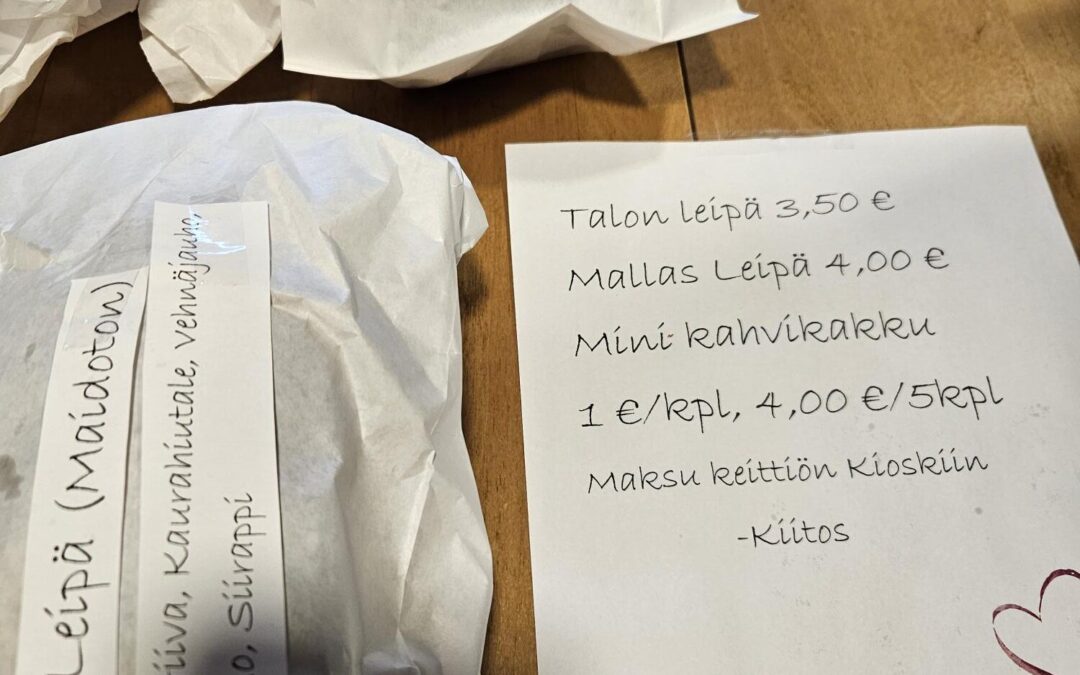 Leipä (Maidoton)
Kaurahiutale, vehnäjauho,
Siirappi
Talon leipä 3,50 €
Mallas Leipä 4,00 €
Mini kahvikakku
1 €/kpl, 4,00 €/5kpl
Maksu keittiön Kioskiin
-Kiitos